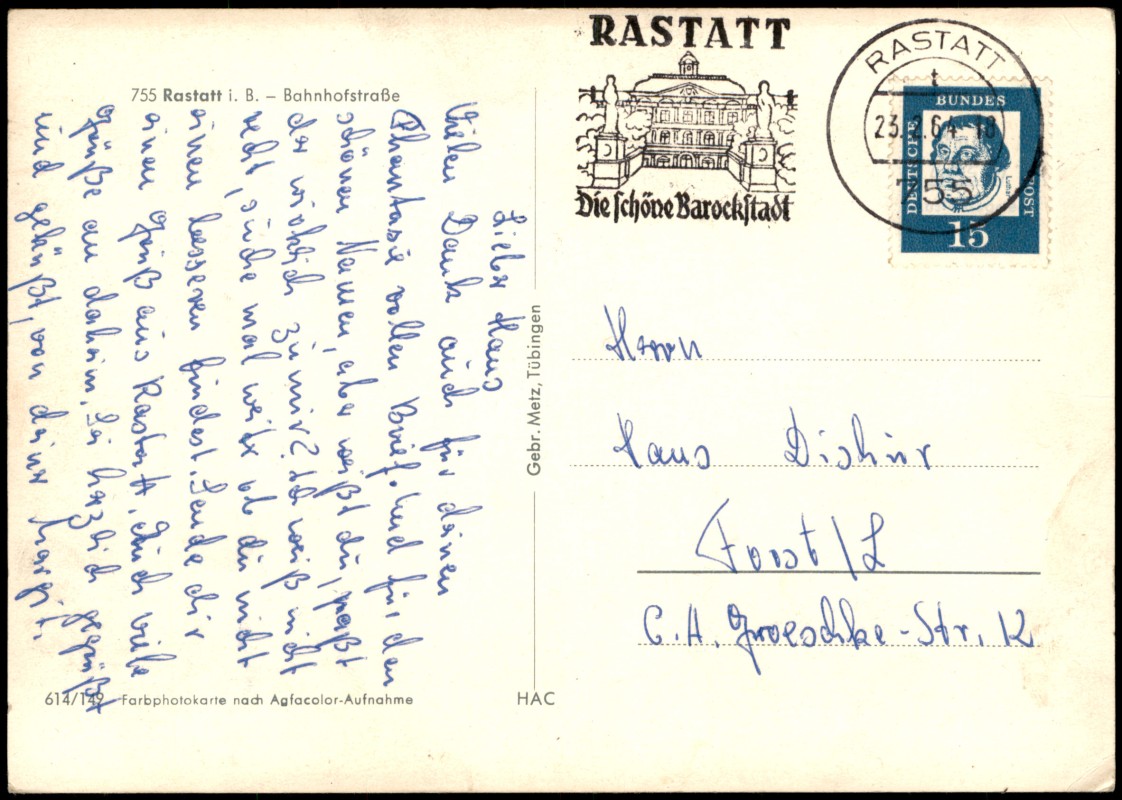 755 Rastatt i. B. – Bahnhofstraße
Lieber Hans
Vielen Dank auch für deinen
Phantasie vollen Brief. Und für den
schönen Namen, aber weißt du, paßt
der wirklich zu mir? Ich weiß nicht
recht, suche mal weiter ob du nicht
einen besseren findest. Sende dir
einen Gruß aus Rastatt. Auch viele
Grüße an daheim. Sei herzlich gegrüßt
und geküßt, von deiner Margit.
614/149 Farbphotokarte nach Agfacolor-Aufnahme
Gebr. Metz, Tübingen
HAC
RASTATT
Die schöne Barockstadt
RASTATT
t
23.2.64-18
755
DEUTSCHE
BUNDES
POST
15
Herrn
Hans
Forst/L
C.A. Groeschke-Str. 12